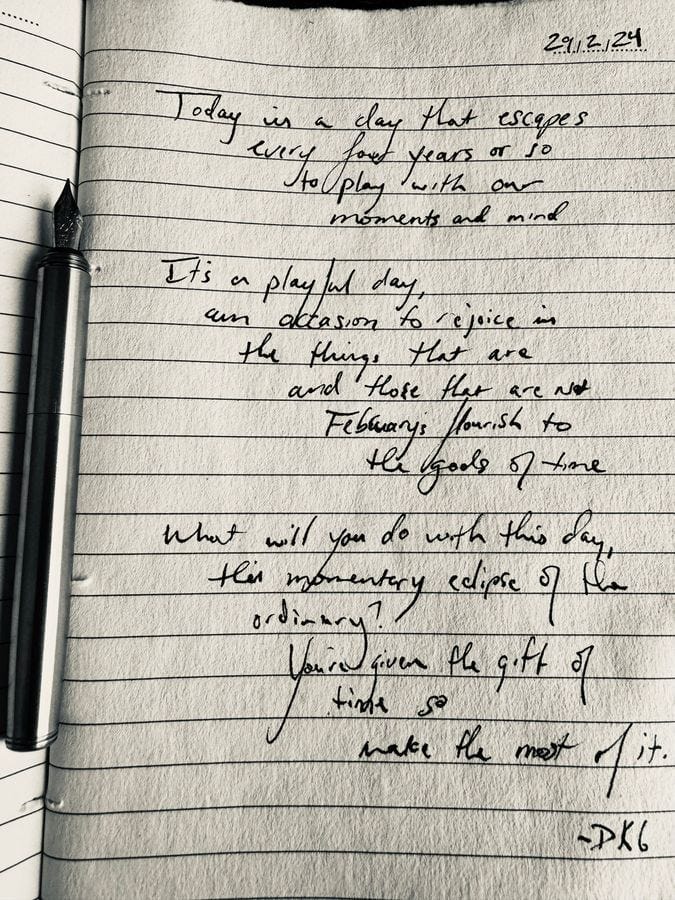 29.2.24
Today is a day that escapes
every four years or so
to play with our
moments and mind
It's a playful day,
an occasion to rejoice in
the things that are
and those that are not
February's flourish to
the gods of time
What will you do with this day,
this momentary eclipse of the
ordinary?
You're given the gift of
time so
make the most of it.
-DKG